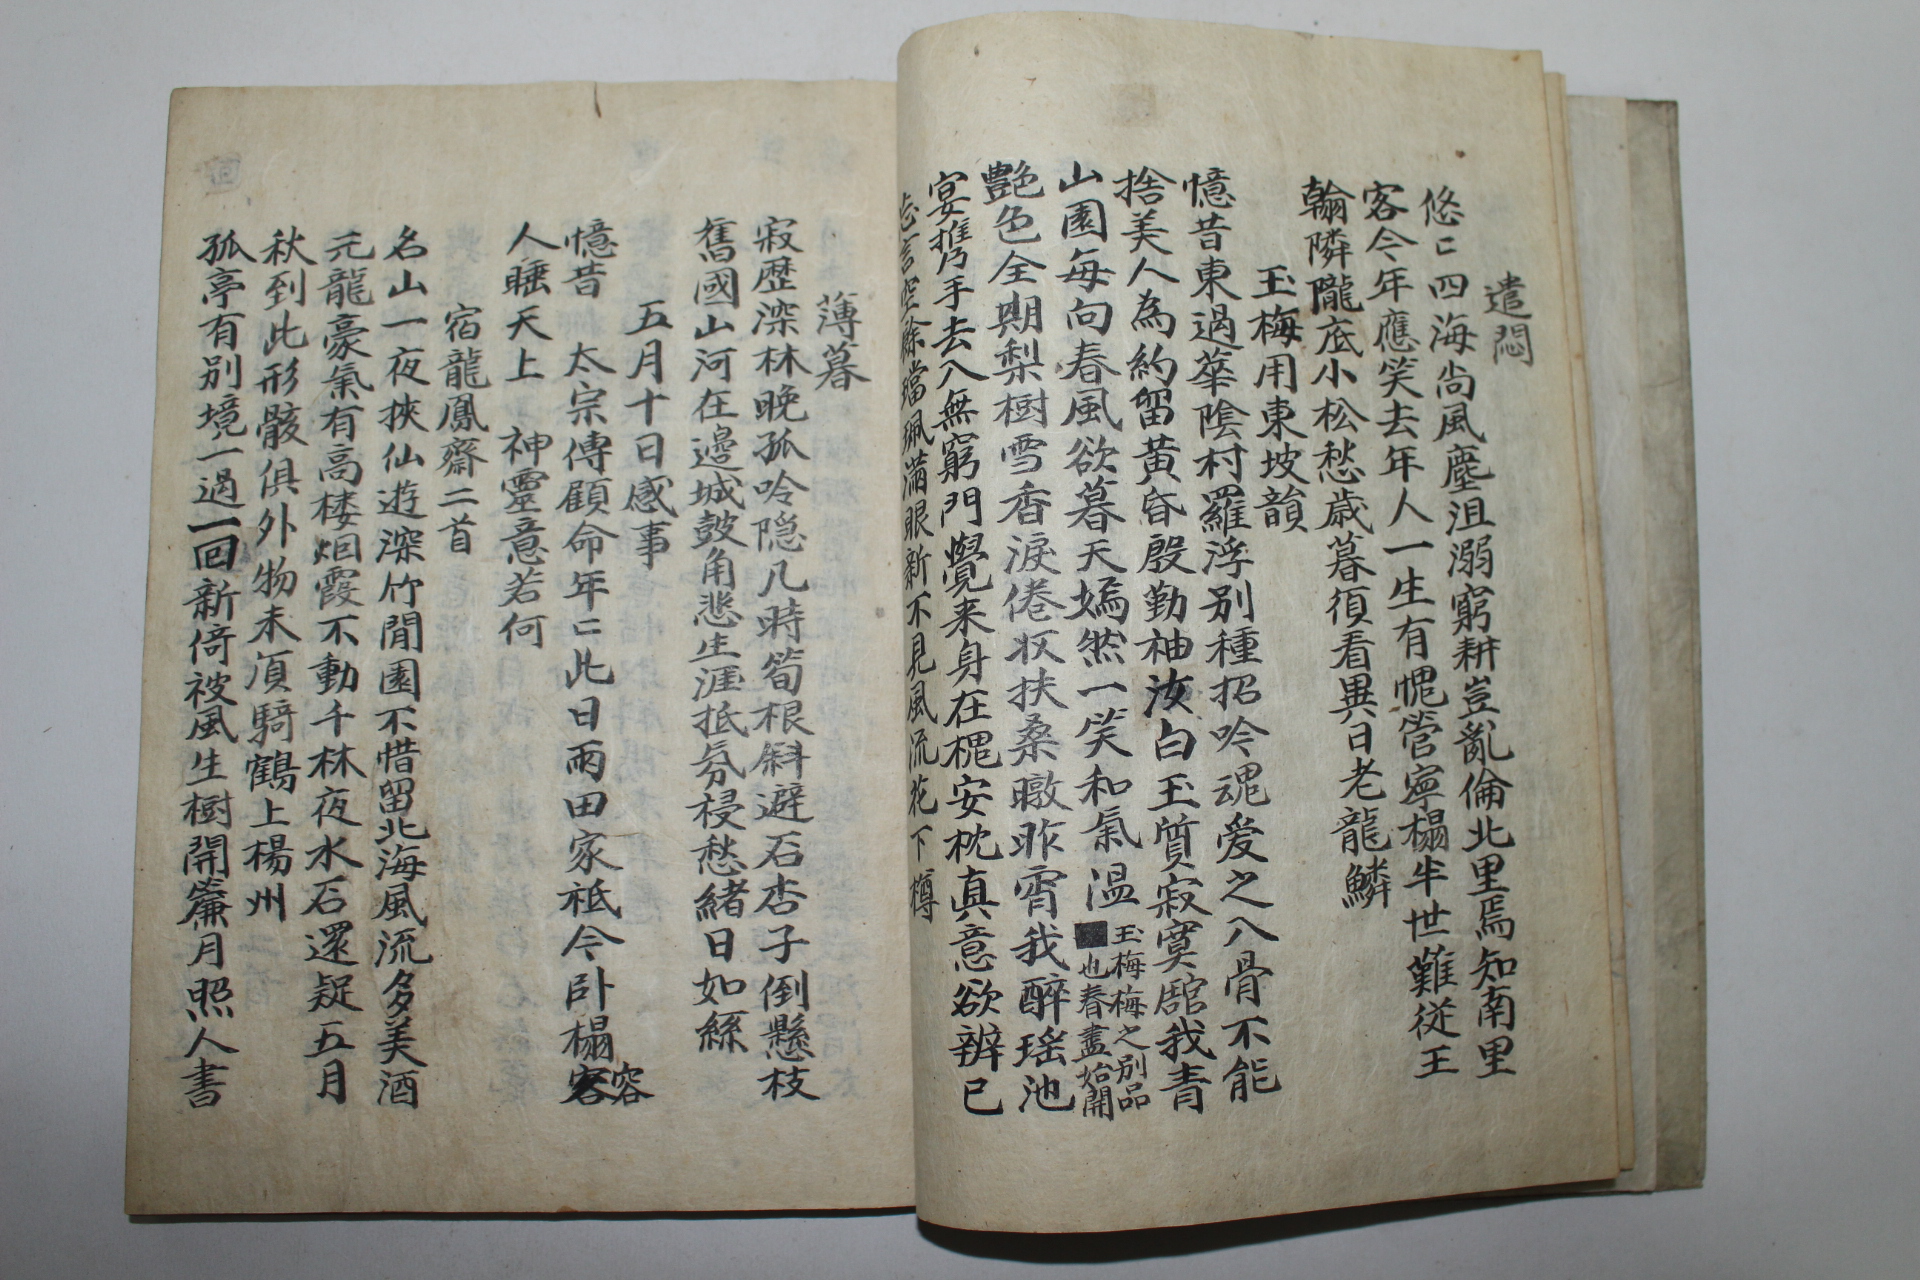 遣悶
悠〻四海尚風塵沮溺窮耕豈亂倫北里焉知南里
客今年應笑去年人一生有愧管寧榻半世難從王
翰隣隴底小松愁歲暮須看異日老龍鱗
玉梅用東坡韻
憶昔東過華陰村羅浮別種招吟魂爱之入骨不能
捨美人為約留黃昏殷勤袖汝白玉質寂寞館我青
山園每向春風欲暮天嫣然一笑和氣温玉梅梅之別品
也春盡始開
艶色全期梨樹雪香淚倦収扶桑暾昨宵我醉瑤池
宴推乃手去入無窮門覺来身在槐安枕真意欲辨已
忘言空餘璫珮滿眼新不見風流花下樽
薄暮
寂歷深林晚孤吟隐几時筍根斜避石杏子倒懸枝
舊國山河在邊城鼓角悲生涯抵氛祲愁緒日如絲
五月十日感事
憶昔 太宗傳顧命年〻此日雨田家祗今卧榻客容
人睡天上 神靈意若何
宿龍鳳齋二首
名山一夜挾仙遊深竹閒園不惜留北海風流多美酒
元龍豪氣有高楼烟霞不動千林夜水石還疑五月
秋到此形骸俱外物未須騎鶴上楊州
孤亭有别境一過一回新倚被風生樹開簾月照人書